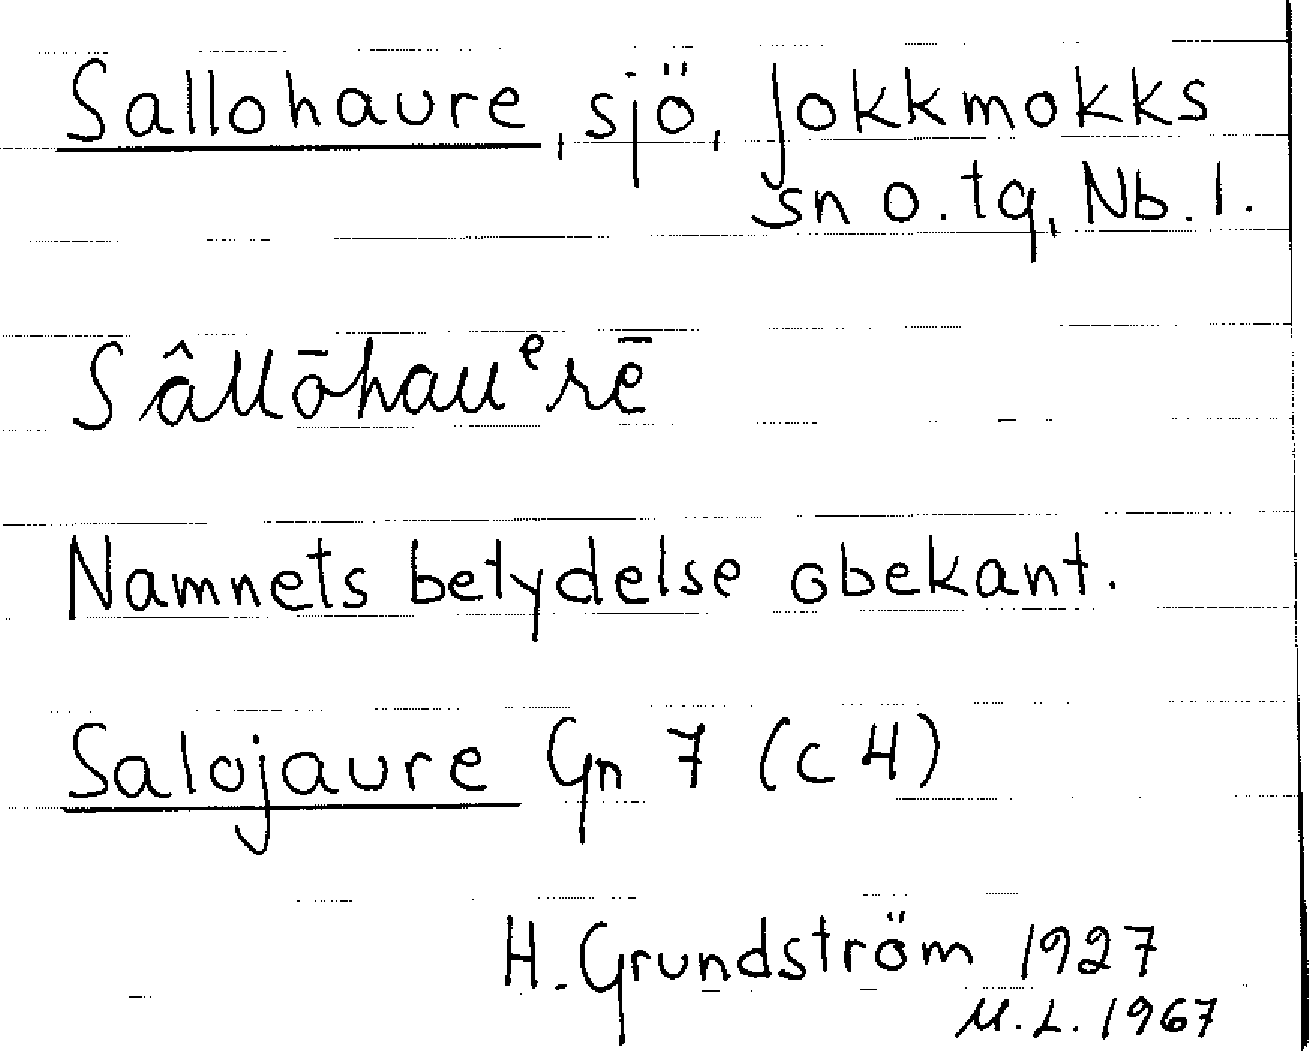 Sallohaure, sjö, Jokkmokks
sn o. tg, Nb. l.
Sâllōhauᵉrē
Namnets betydelse obekant.
Salojaure Gn 7 (c 4)
H. Grundström 1927
M.L. 1967